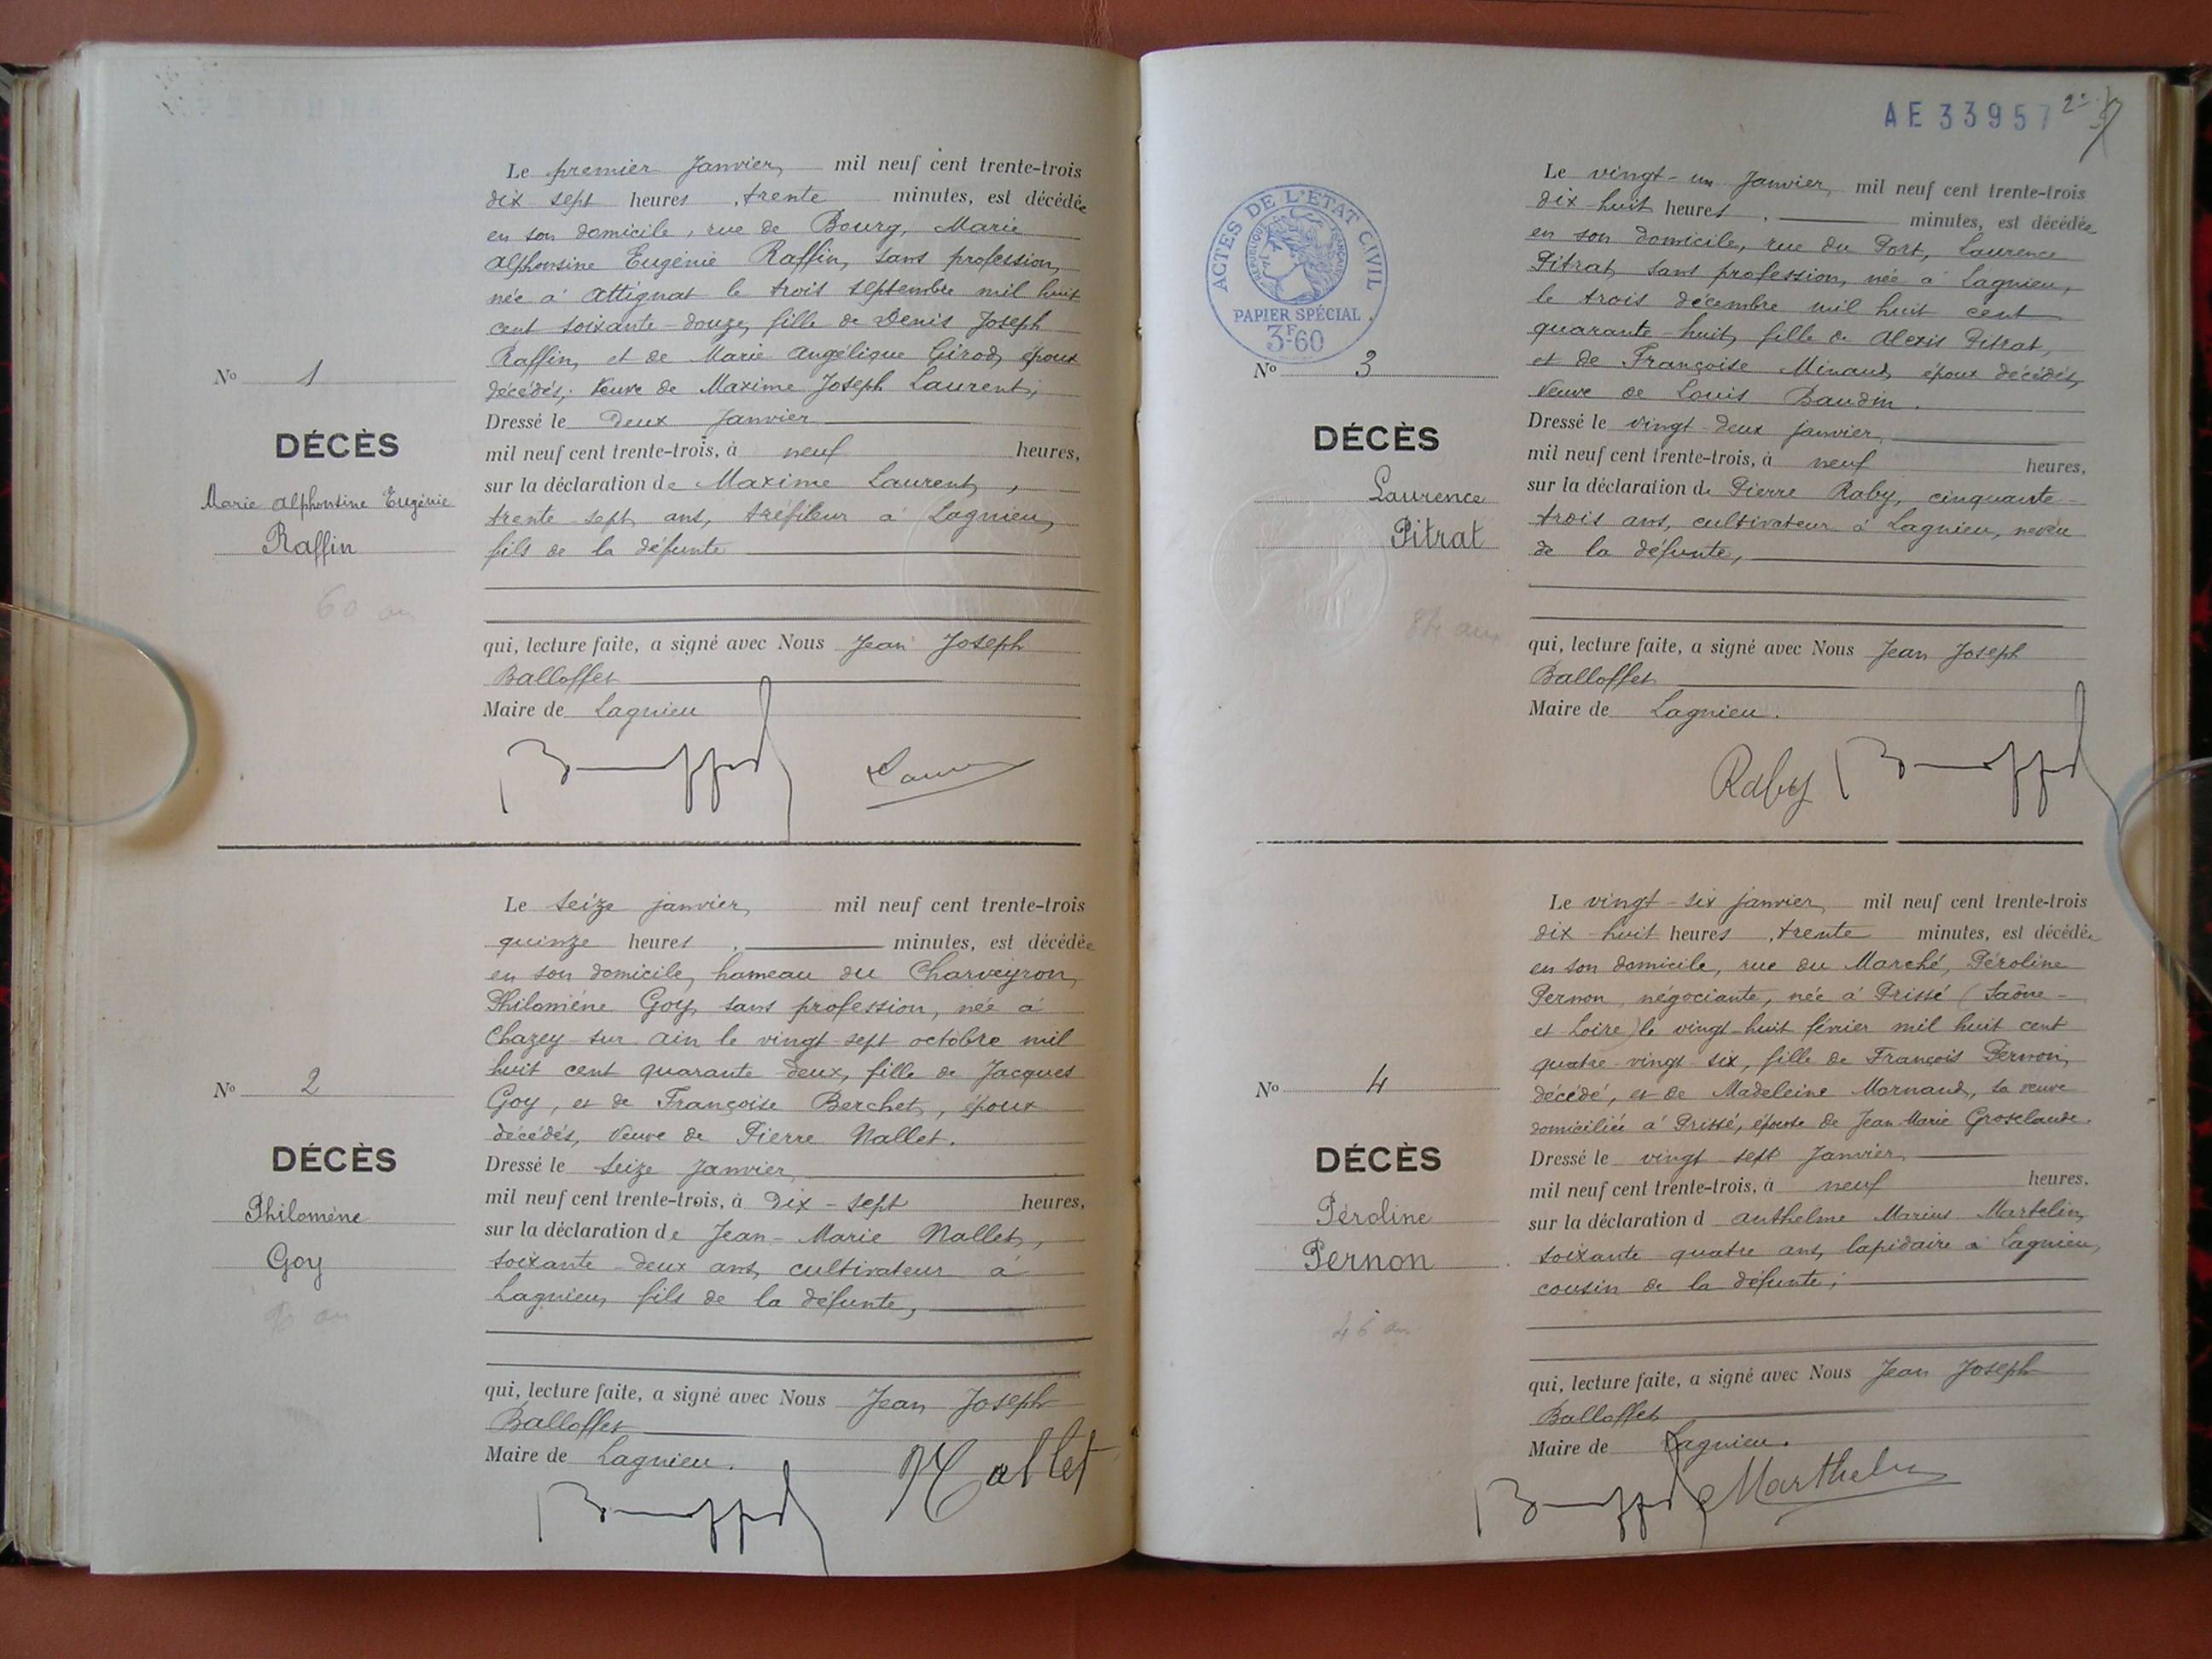 Le premier Janvier, mil neuf cent trente-trois
dix sept heures, trente minutes, est décédée
en son domicile, rue de Bourg, Marie
Alphonsine Eugénie Raffin, sans profession,
née à Attignat le trois septembre mil huit
cent soixante-douze, fille de Denis Joseph
Raffin, et de Marie Angélique Girod, époux
décédés; Veuve de Maxime Joseph Laurent;
Dressé le Deux Janvier
mil neuf cent trente-trois, à neuf heures,
sur la déclaration de Maxime Laurent,
trente-sept ans, tréfileur à Lagnieu,
fils de la défunte
qui, lecture faite, a signé avec Nous Jean Joseph
Balloffet
Maire de Lagnieu
No 1
DÉCÈS
Marie Alphonsine Eugénie
Raffin
60 an
Le seize janvier, mil neuf cent trente-trois
quinze heures, minutes, est décédée
en son domicile, hameau du Charveyron,
Philomène Goy, sans profession, née à
Chazey-sur-Ain le vingt-sept octobre mil
huit cent quarante-deux, fille de Jacques
Goy, et de Françoise Berchet, époux
décédés, Veuve de Pierre Nallet.
Dressé le Seize Janvier
mil neuf cent trente-trois, à Dix-sept heures,
sur la déclaration de Jean-Marie Nallet,
soixante-deux ans, cultivateur à
Lagnieu, fils de la défunte,
qui, lecture faite, a signé avec Nous Jean Joseph
Balloffet
Maire de Lagnieu.
Nallet
No 2
DÉCÈS
Philomène
Goy
AE 33957
ACTES DE L'ETAT CIVIL
REPUBLIQUE FRANÇAISE
PAPIER SPÉCIAL
3F60
Le vingt-un Janvier, mil neuf cent trente-trois
dix-huit heures, minutes, est décédée
en son domicile, rue du Port, Laurence
Pitrat, sans profession, née à Lagnieu,
le trois décembre mil huit cent
quarante-huit, fille de Alexis Pitrat,
et de Françoise Minaud, époux décédés,
Veuve de Louis Baudin.
Dressé le vingt-deux janvier,
mil neuf cent trente-trois, à neuf heures,
sur la déclaration de Pierre Raby, cinquante-
trois ans, cultivateur à Lagnieu, neveu
de la défunte,
qui, lecture faite, a signé avec Nous Jean Joseph
Balloffet
Maire de Lagnieu.
Raby
No 3
DÉCÈS
Laurence
Pitrat
84 ans
Le vingt-six janvier, mil neuf cent trente-trois
dix-huit heures, trente minutes, est décédée
en son domicile, rue du Marché, Péroline
Pernon, négociante, née à Prissé (Saône-
et-Loire) le vingt-huit février mil huit cent
quatre-vingt-six, fille de François Pernon,
décédé, et de Madeleine Mornand, sa veuve
domiciliée à Prissé, épouse de Jean-Marie Groselaude.
Dressé le vingt-sept Janvier,
mil neuf cent trente-trois, à neuf heures,
sur la déclaration d Anthelme Marius Martelin,
soixante-quatre ans, lapidaire à Lagnieu,
cousin de la défunte;
qui, lecture faite, a signé avec Nous Jean Joseph
Balloffet
Maire de Lagnieu.
Marthelin
No 4
DÉCÈS
Péroline
Pernon
46 an